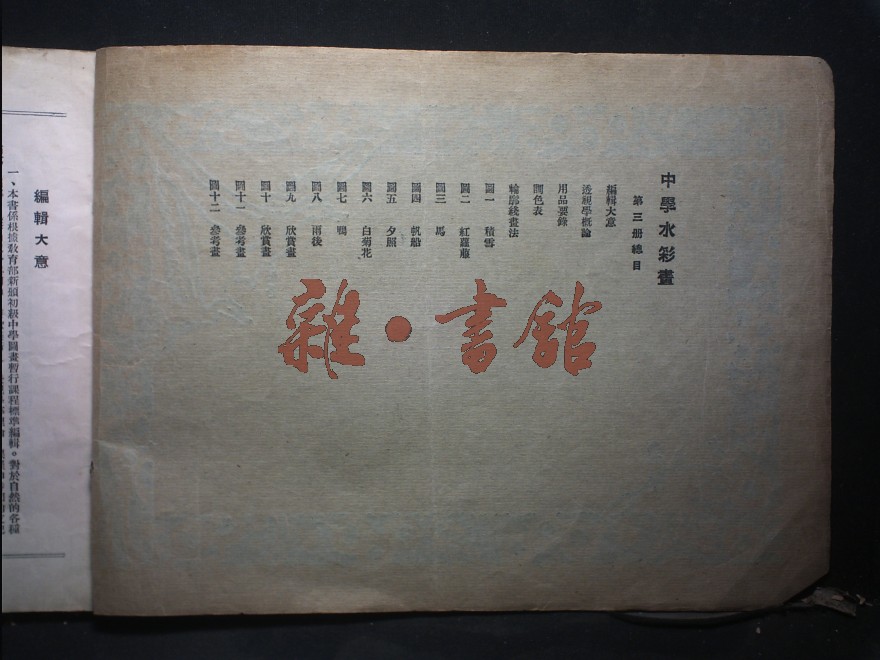 中學水彩畫
第三册總目
編輯大意
透視學概論
用品要錄
調色表
輪廓綫畫法
圖一 積雪
圖二 紅蘿蔔
圖三 馬
圖四 帆船
圖五 夕照
圖六 白菊花
圖七 鴨
圖八 雨後
圖九 欣賞畫
圖十 欣賞畫
圖十一 參考畫
圖十二 參考畫
雜·書館
編輯大意
一、本書係根據教育部新頒初級中學圖畫暫行課程標準編輯。對於自然的各種